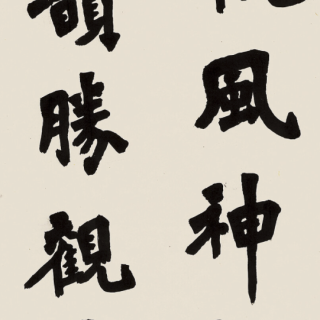 風神
韻勝觀